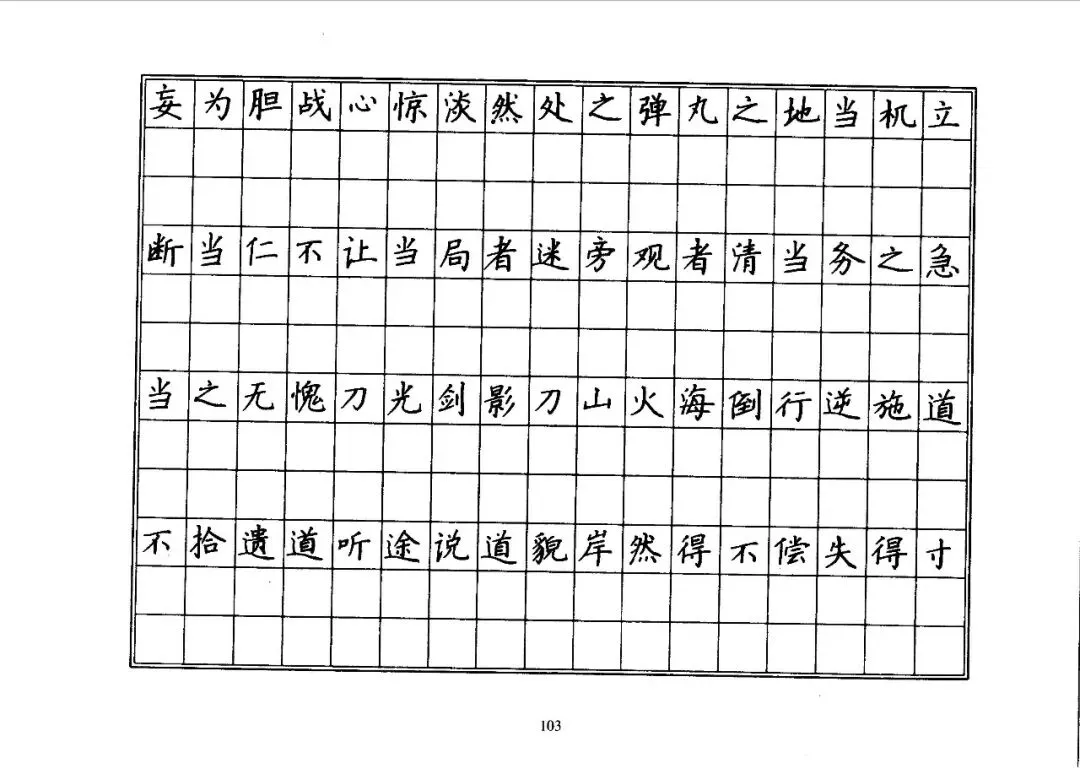 妄为胆战心惊淡然处之弹丸之地当机立
断当仁不让当局者迷旁观者清当务之急
当之无愧刀光剑影刀山火海倒行逆施道
不拾遗道听途说道貌岸然得不偿失得寸
103